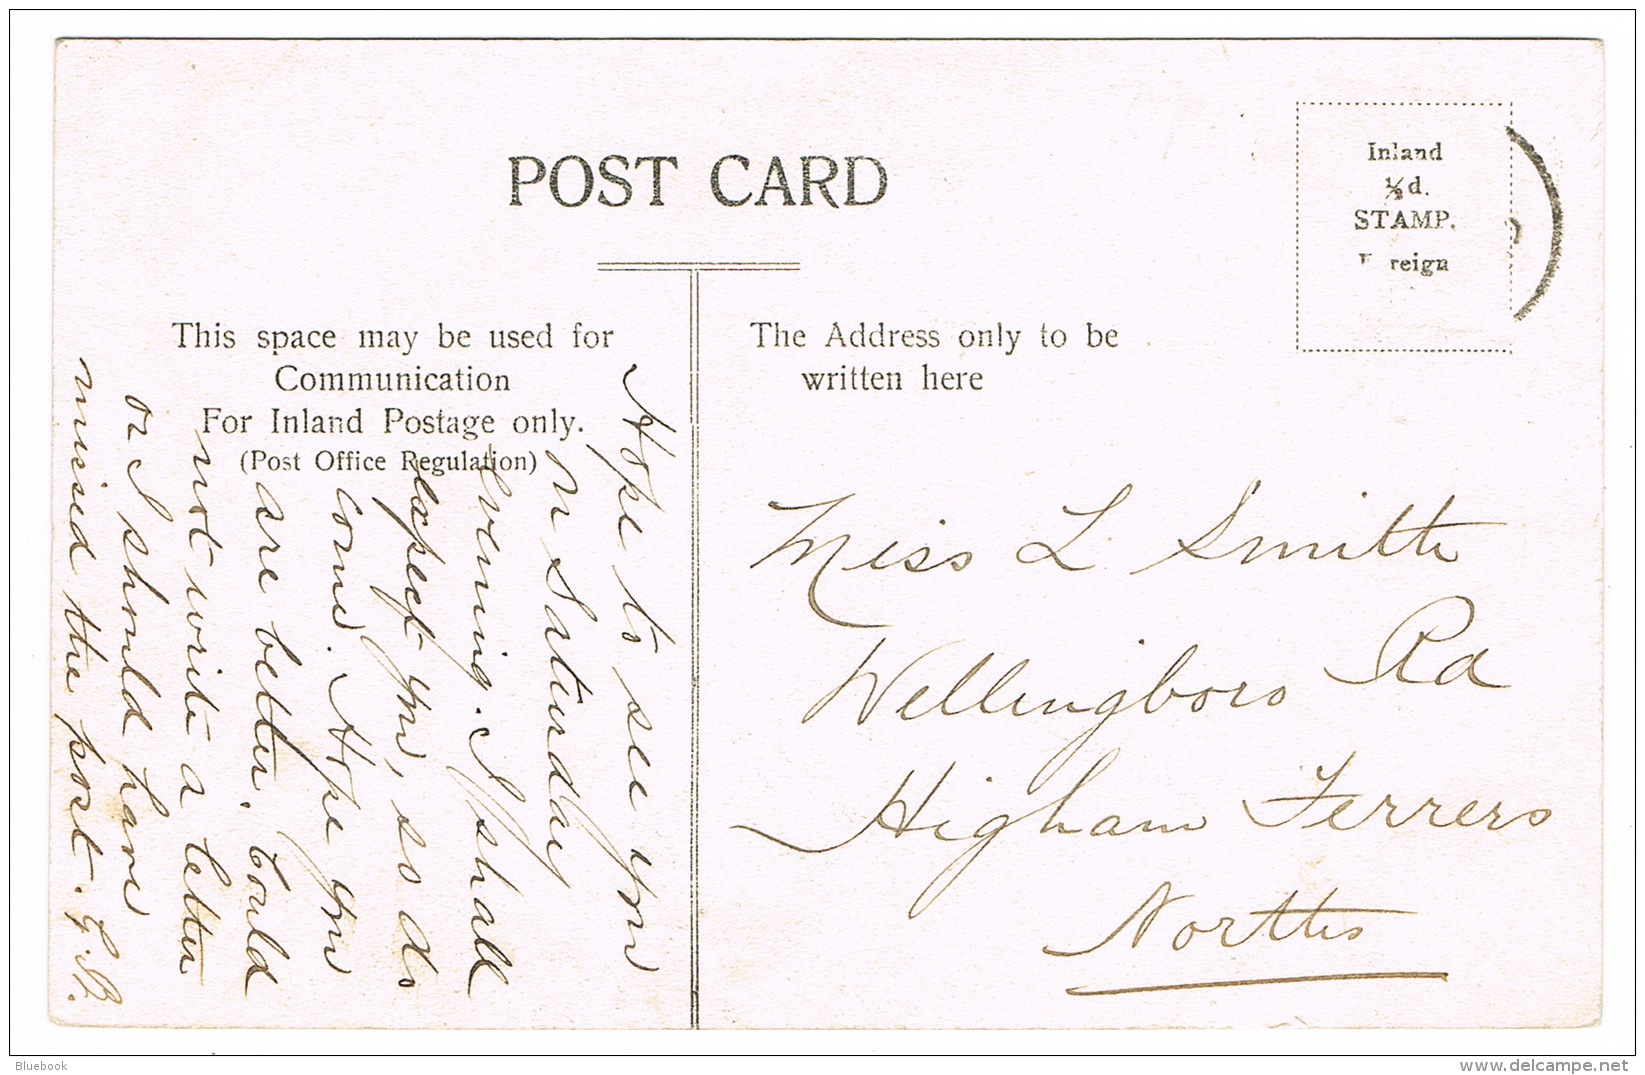 POST CARD
Inland
½d.
STAMP.
F reign
This space may be used for
Communication
For Inland Postage only.
(Post Office Regulation)
The Address only to be
written here
Hope to see you
on Saturday
evening. I shall
expect you, so do
come. Hope you
are better. Could
not write a letter
or I should have
missed the post. G.B.
Miss L Smith
Wellingboro Rd
Higham Ferrers
Northts
Bluebook
delcampe.net